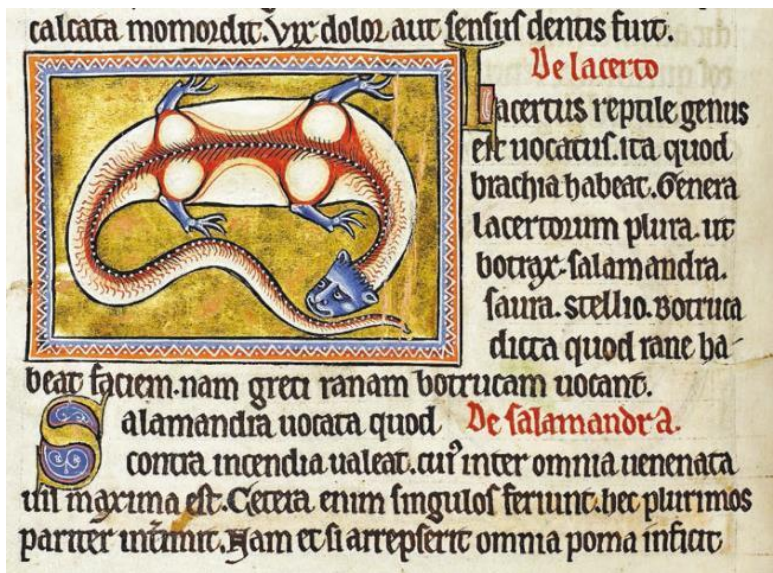 calcata momordit. Vix dolor aut sensus dentis fuit.
De lacerto
Lacertus reptile genus
est uocatus. ita quod
brachia habeat. Genera
lacertorum plura. ut
botrax. salamandra.
saura. stellio. Botruca
dicta quod rane ha-
beat faciem. nam greci ranam botrucam uocant.
Salamandra uocata quod De salamandra.
contra incendia ualeat. cuiꝰ inter omnia uenenata
uis maxima est. Cetera enim singulos feriunt. hec plurimos
pariter int̄imit. Nam et si arrepserit omnia poma inficit